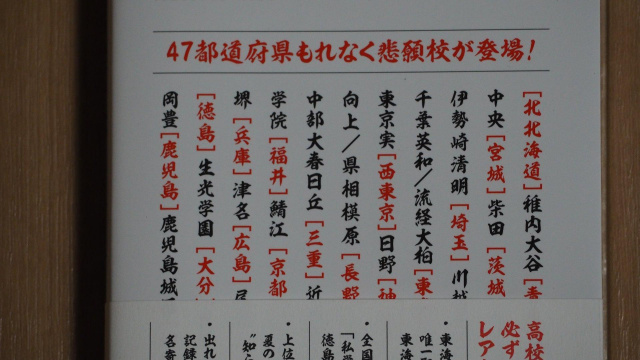 47都道府県もれなく悲願校が登場！
［北北海道］稚内大谷［青
中央［宮城］柴田［茨城
伊勢崎清明［埼玉］川越
千葉英和／流経大柏［東
東京実［西東京］日野［神
向上／県相模原［長野
中部大春日丘［三重］近
学院［福井］鯖江［京都
堺［兵庫］津名［広島］
［徳島］生光学園［大分
岡豊［鹿児島］鹿児島城
高校
必ず
レア
・東海
唯一
東海
・全国
「私学
徳島
・上位
夏の
“知ら
・出れ
記録
名寄